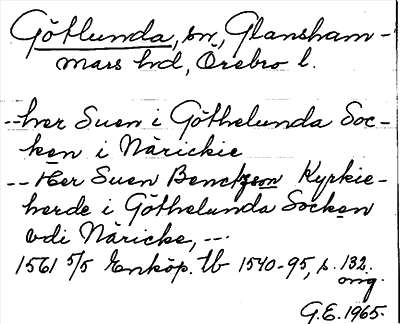 Götlunda, sn, Glansham-
mars hd, Örebro l.
--her Suen i Göthelunda Soc-
ken i Närickie
-- Her Suen Benctzson Kyrkie-
herde i Göthelunda Socken
vdi Näricke, --.
1561 5/5 Enköp. tb 1540-95, s. 132.
orig.
G.E. 1965.